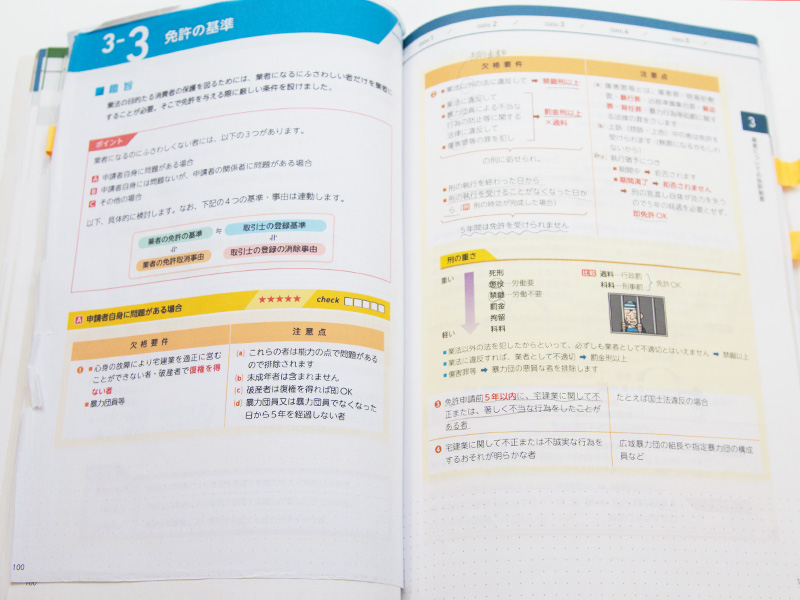 3-3 免許の基準
■趣旨
業法の目的たる消費者の保護を図るためには、業者になるにふさわしい者だけを業者に
することが必要。そこで免許を与える際に厳しい条件を設けました。
ポイント
業者になるのにふさわしくない者には、以下の3つがあります。
A 申請者自身に問題がある場合
B 申請者自身には問題ないが、申請者の関係者に問題がある場合
C その他の場合
以下、具体的に検討します。なお、下記の4つの基準・事由は連動します。
業者の免許の基準 ≒ 取引士の登録基準
業者の免許取消事由 取引士の登録の消除事由
A 申請者自身に問題がある場合 ★★★★★ check
欠格要件 注意点
❶ ■心身の故障により宅建業を適正に営む
ことができない者・破産者で復権を得
ない者
■暴力団員等
(a) これらの者は能力の点で問題がある
ので排除されます
(b) 未成年者は含まれません
(c) 破産者は復権を得れば即OK
(d) 暴力団員又は暴力団員でなくなった
日から5年を経過しない者
100
欠格要件 注意点
■業法以外の法に違反して ➡ 禁錮刑以上
■業法に違反して
■暴力団員による不当な
行為の防止等に関する
法律に違反して
■傷害罪等の罪を犯し
➡ 罰金刑以上
×過料
の刑に処せられ、
■刑の執行を終わった日から
■刑の執行を受けることがなくなった日か
ら(刑の時効が完成した場合)
5年間は免許を受けられません
受けられます(無罪になるかもしれ
ないから)
執行猶予につき
■期間中 ➡ 拒否されます
■期間満了 ➡ 拒否されません
➡ 刑の言渡し自体が効力を失う
ので5年の経過を必要とせず、
即免許OK
3
刑の重さ
重い
軽い
死刑
懲役―労働要
禁錮―労働不要
罰金
拘留
科料
比較 過料―行政罰
科料―刑事罰
免許OK
■業法以外の法を犯したからといって、必ずしも業者として不適切とはいえません ➡ 禁錮以上
■業法に違反すれば、業者として不適切 ➡ 罰金刑以上
■傷害罪等 ➡ 暴力団の悪質な者を排除します
❸ 免許申請前5年以内に、宅建業に関して不
正または、著しく不当な行為をしたことが
ある者
たとえば国土法違反の場合
❹ 宅建業に関して不正または不誠実な行為を
するおそれが明らかな者
広域暴力団の組長や指定暴力団の構成
員など